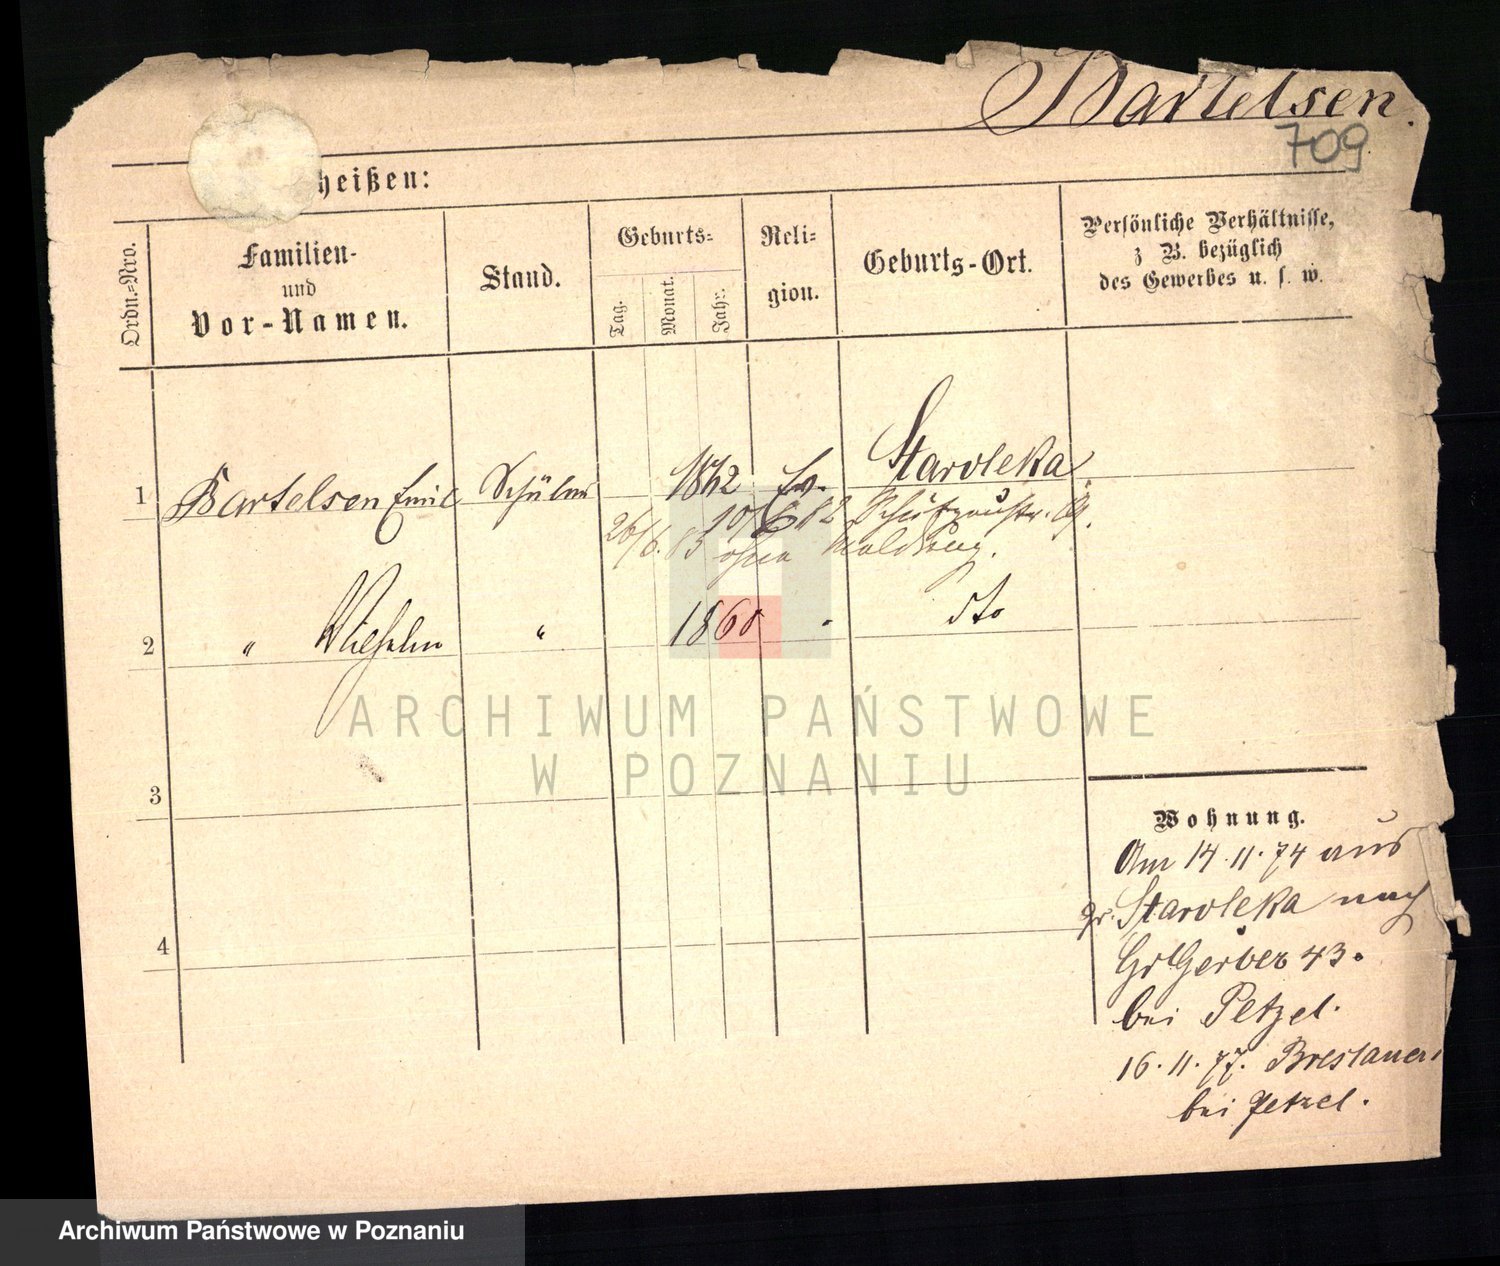 Bartelsen.
709
heißen:
Ordn.-Nro.
Familien-
und
Vor-Namen.
Stand.
Geburts-
Tag.
Monat.
Jahr.
Reli-
gion.
Geburts-Ort.
Persönliche Verhältnisse,
z. B. bezüglich
des Gewerbes u. s. w.
1 Bartelsen Emil Schüler 1862 Ev. Staroleka
10/6 82 Schützenstr.
26/6. 83 ohne Meldung.
2 " Wilhelm " 1860 " dto
3
4
Wohnung.
Am 14.11.74 aus
gr. Staroleka nach
Gr Gerber 43.
bei Petzel.
16.11.77. Breslauer
bei Petzel.
ARCHIWUM PAŃSTWOWE
W POZNANIU
Archiwum Państwowe w Poznaniu